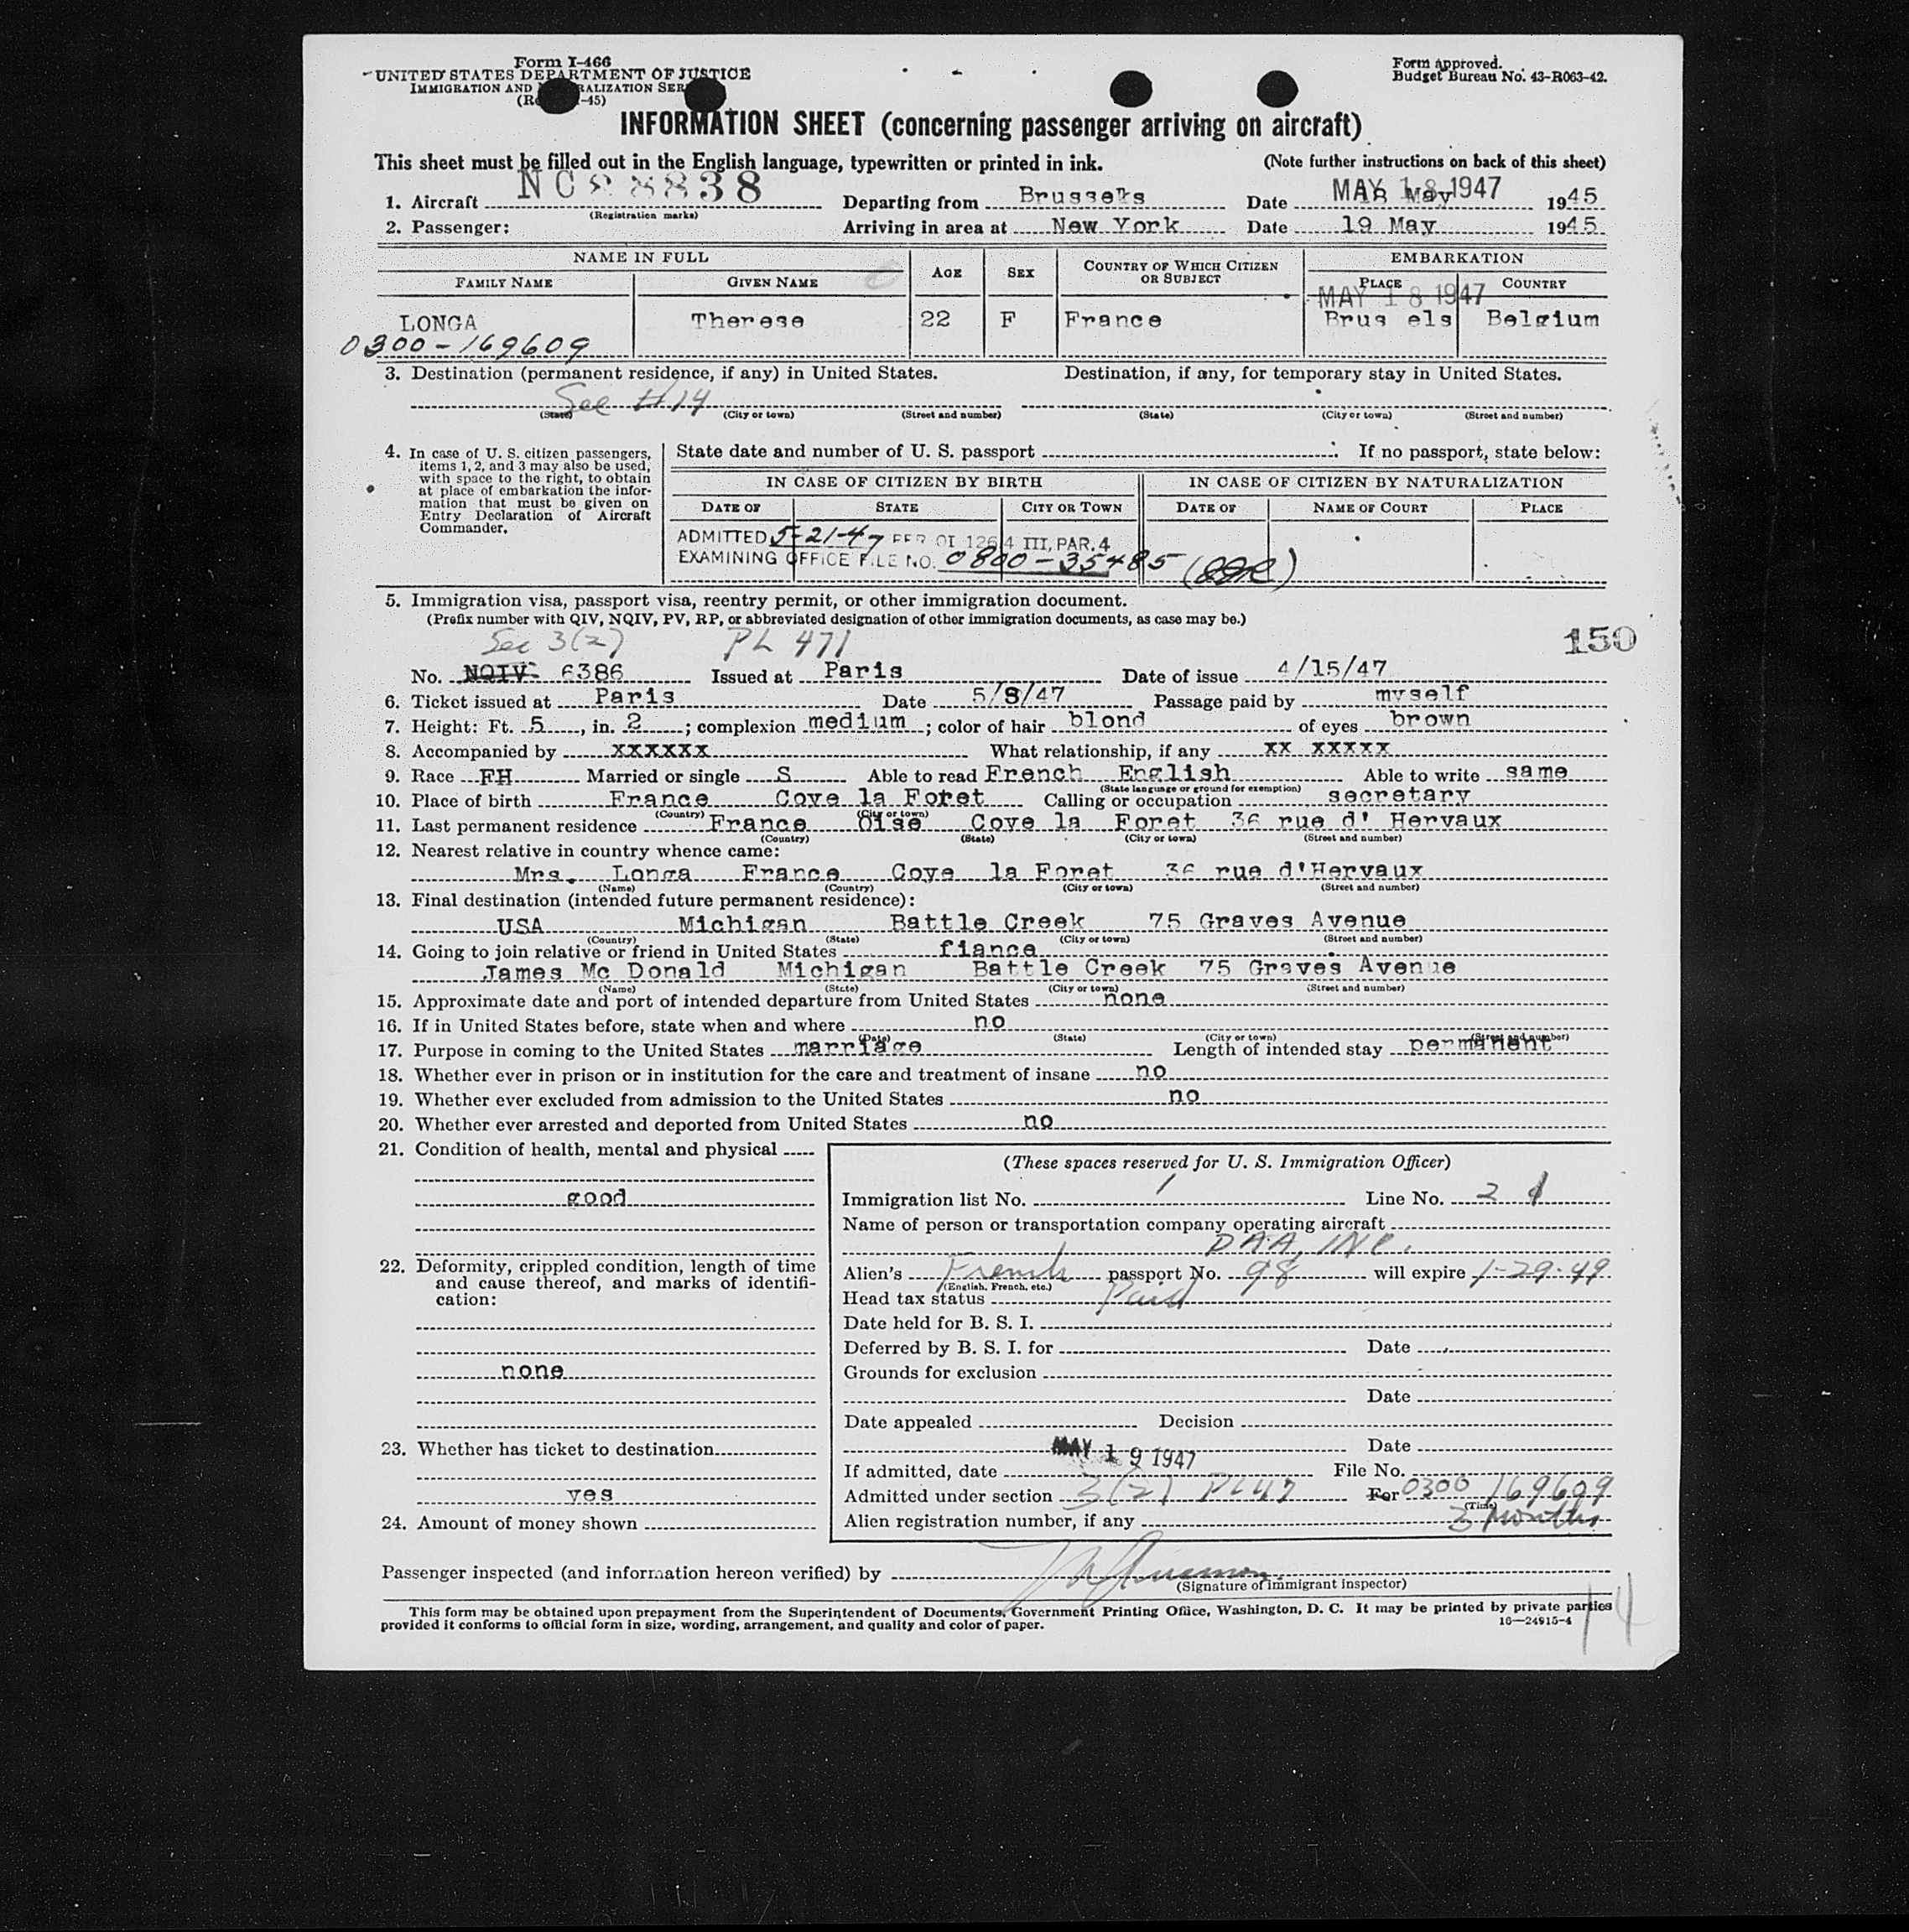 Form I-466
UNITED STATES DEPARTMENT OF JUSTICE
IMMIGRATION AND RALIZATION SER
-45)
Form approved.
Budget Bureau No. 43-R063-42.
INFORMATION SHEET (concerning passenger arriving on aircraft)
This sheet must be filled out in the English language, typewritten or printed in ink. (Note further instructions on back of this sheet)
1. Aircraft NC88838 Departing from Brussels Date MAY 18 1947 18 May 1945
(Registration marks)
2. Passenger: Arriving in area at New York Date 19 May 1945
NAME IN FULL AGE SEX COUNTRY OF WHICH CITIZEN OR SUBJECT EMBARKATION
FAMILY NAME GIVEN NAME PLACE COUNTRY
MAY 18 1947
LONGA Therese 22 F France Brus els Belgium
0300-169609
3. Destination (permanent residence, if any) in United States. Destination, if any, for temporary stay in United States.
See #14
(State) (City or town) (Street and number) (State) (City or town) (Street and number)
4. In case of U. S. citizen passengers, items 1, 2, and 3 may also be used, with space to the right, to obtain at place of embarkation the information that must be given on Entry Declaration of Aircraft Commander.
State date and number of U. S. passport If no passport, state below:
IN CASE OF CITIZEN BY BIRTH IN CASE OF CITIZEN BY NATURALIZATION
DATE OF STATE CITY OR TOWN DATE OF NAME OF COURT PLACE
ADMITTED 5-21-47 PER OI 1264 III, PAR. 4
EXAMINING OFFICE FILE NO. 0800-35485
5. Immigration visa, passport visa, reentry permit, or other immigration document.
(Prefix number with QIV, NQIV, PV, RP, or abbreviated designation of other immigration documents, as case may be.)
Sec 3(2) PL 471 150
No. NQIV- 6386 Issued at Paris Date of issue 4/15/47
6. Ticket issued at Paris Date 5/8/47 Passage paid by myself
7. Height: Ft. 5, in. 2; complexion medium; color of hair blond of eyes brown
8. Accompanied by xxxxxx What relationship, if any xx xxxxx
9. Race FH Married or single S Able to read French English Able to write same
(State language or ground for exemption)
10. Place of birth France Coye la Foret Calling or occupation secretary
(Country) (City or town)
11. Last permanent residence France Oise Coye la Foret 36 rue d' Hervaux
(Country) (State) (City or town) (Street and number)
12. Nearest relative in country whence came:
Mrs. Longa France Coye la Foret 36 rue d'Hervaux
(Name) (Country) (City or town) (Street and number)
13. Final destination (intended future permanent residence):
USA Michigan Battle Creek 75 Graves Avenue
(Country) (State) (City or town) (Street and number)
14. Going to join relative or friend in United States fiance
James Mc Donald Michigan Battle Creek 75 Graves Avenue
(Name) (State) (City or town) (Street and number)
15. Approximate date and port of intended departure from United States none
16. If in United States before, state when and where no
(Date) (State) (City or town) (Street and number)
17. Purpose in coming to the United States marriage Length of intended stay permanent
18. Whether ever in prison or in institution for the care and treatment of insane no
19. Whether ever excluded from admission to the United States no
20. Whether ever arrested and deported from United States no
21. Condition of health, mental and physical
good
22. Deformity, crippled condition, length of time and cause thereof, and marks of identification:
none
23. Whether has ticket to destination
yes
24. Amount of money shown
(These spaces reserved for U. S. Immigration Officer)
Immigration list No. 1 Line No. 2
Name of person or transportation company operating aircraft
PAA, INC.
Alien's French passport No. 98 will expire 1-29-49
(English, French, etc.)
Head tax status Paid
Date held for B. S. I.
Deferred by B. S. I. for Date
Grounds for exclusion
Date
Date appealed Decision
Date
If admitted, date MAY 19 1947 File No.
Admitted under section 3(2) PL47 For 0300 169609
(Time)
Alien registration number, if any 3 Months
Passenger inspected (and information hereon verified) by
(Signature of immigrant inspector)
This form may be obtained upon prepayment from the Superintendent of Documents, Government Printing Office, Washington, D. C. It may be printed by private parties
provided it conforms to official form in size, wording, arrangement, and quality and color of paper. 16—24915-4
14